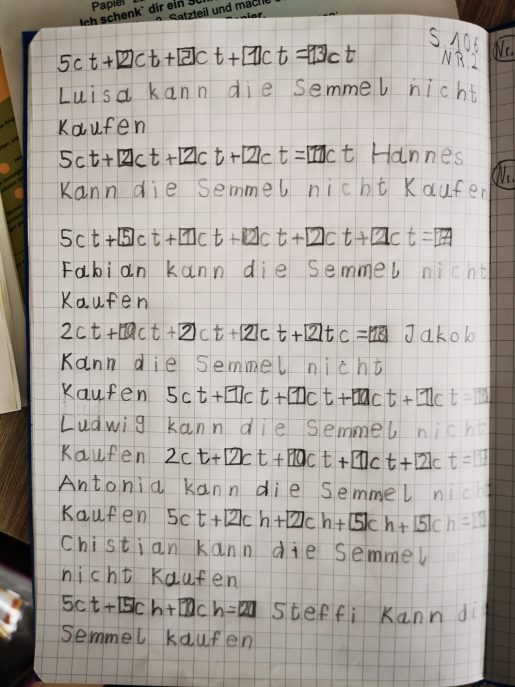 Ich schenk' dir ein
2. Satzteil und mache
S. 103
NR. 2
5ct+2ct+2ct+1ct=13ct
Luisa kann die Semmel nicht
Kaufen
5ct+2ct+2ct+2ct=11ct Hannes
Kann die Semmel nicht Kaufen
5ct+5ct+1ct+2ct+2ct+2ct=17
Fabian kann die Semmel nicht
Kaufen
2ct+10ct+2ct+2ct+2tc=18 Jakob
Kann die Semmel nicht
Kaufen 5ct+1ct+1ct+10ct+1ct=18
Ludwig kann die Semmel nicht
Kaufen 2ct+2ct+10ct+1ct+2ct=17
Antonia kann die Semmel nich
Kaufen 5ct+2ch+2ch+5ch+5ch=
Chistian kann die Semmel
nicht Kaufen
5ct+5ch+ch= Steffi Kann di
Semmel kaufen